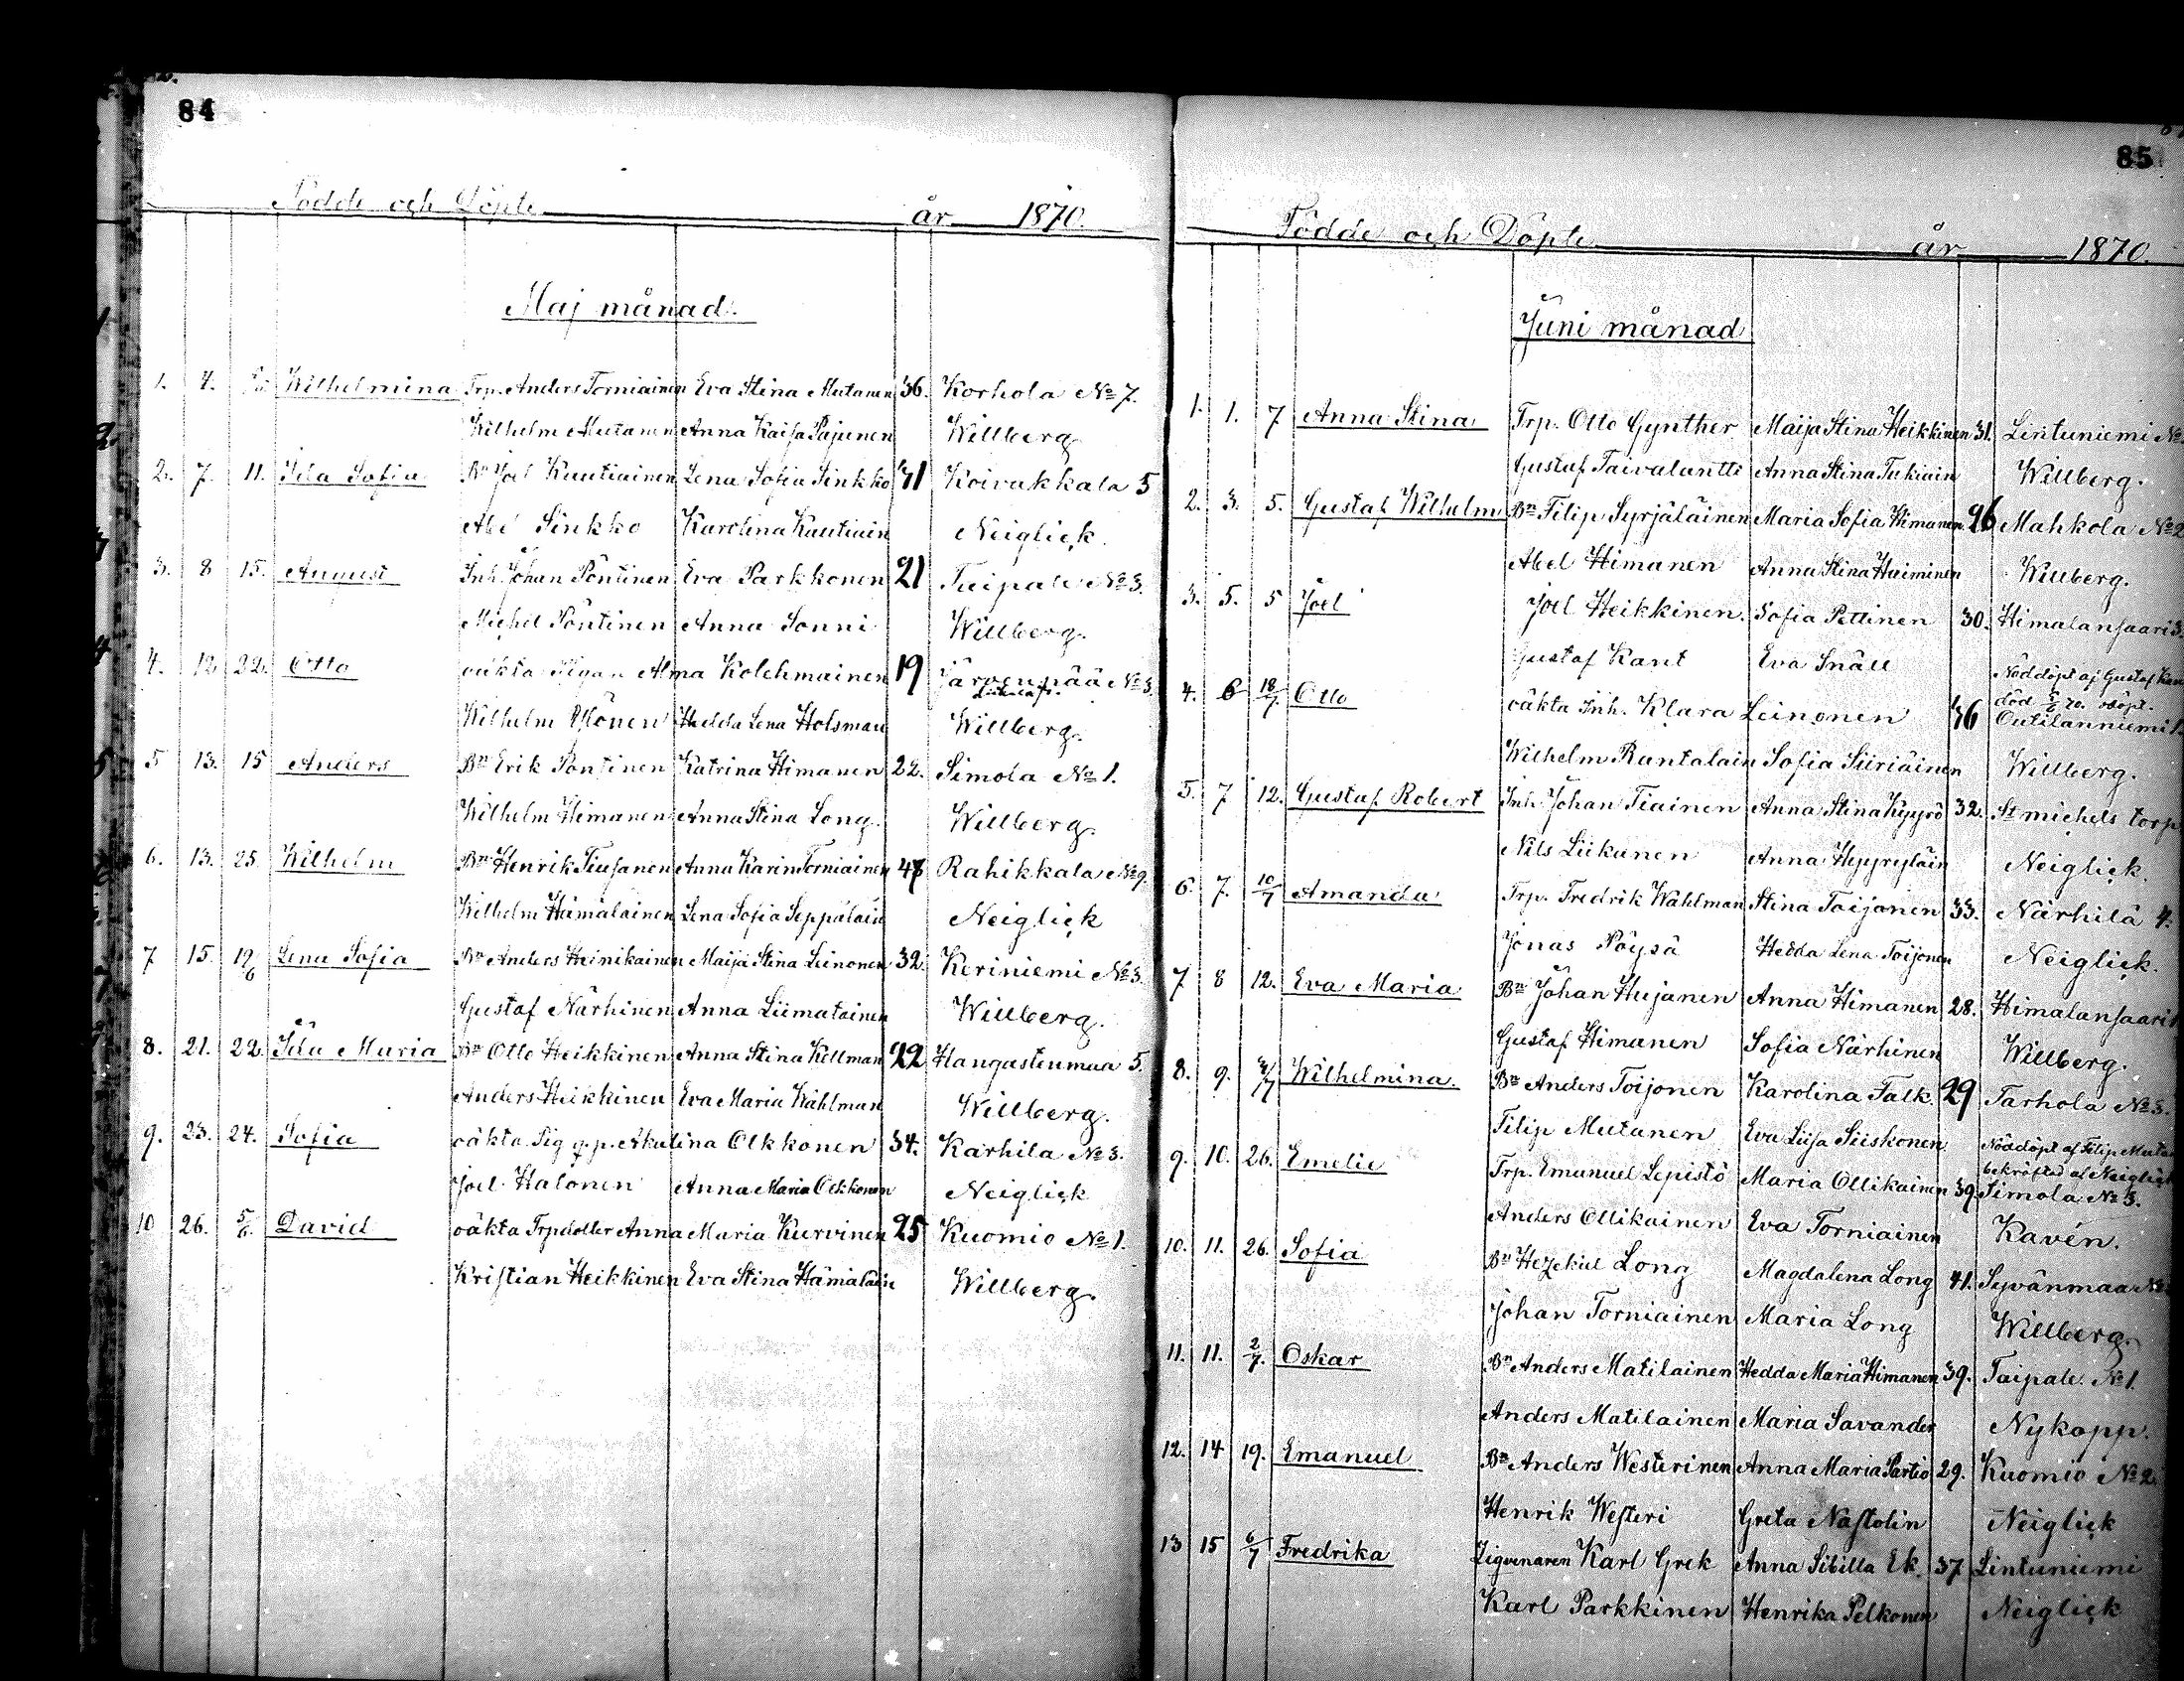 84
Födde och Döpte år 1870.
Maj månad.
1. 4. Wilhelmina Trp. Anders Torniainen Eva Stina Mutanen 36. Korhola No 7.
Wilhelm Mutanen Anna Kaisa Pajunen Willberg
2. 7. 11. Ida Sofia Bn Joel Kautiainen Lena Sofia Sinkko 41 Koivakkala 5
Abel Sinkko Karolina Kautiain Neiglick.
3. 8 15. August Inh. Johan Pöntinen Eva Parkkonen 21 Taipale No 3.
Michel Pöntinen Anna Sonni Willberg.
4. 12 22. Otto oäkta Pigan Alma Kolehmainen 19 Järvenpää No 3.
Wilhelm Hedda Lena Holsman Willberg.
5 13. 15 Anders Bn Erik Pöntinen Katrina Himanen 22. Simola No 1.
Wilhelm Himanen Anna Stina Long. Willberg.
6. 13. 25. Wilhelm Bn Henrik Tiusanen Anna Karin Torniainen 47 Rahikkala No 9.
Wilhelm Hämäläinen Lena Sofia Seppäläin Neiglick
7 15. 19/6 Lena Sofia Bn Anders Heinikainen Maija Stina Leinonen 32. Keriniemi No 3.
Gustaf Närhinen Anna Liimatainen Willberg.
8. 21. 22. Ida Maria Bn Otto Heikkinen Anna Stina Kellman 22 Hangastenmaa 5.
Anders Heikkinen Eva Maria Wahlman Willberg.
9. 23. 24. Sofia oäkta Pig Akulina Olkkonen 34. Karhila No 3.
Joel Halonen Anna Maria Olkkonen Neiglick
10 26. 5/6. David oäkta Trpdotter Anna Maria Kurvinen 25 Kuomio No 1.
Kristian Heikkinen Eva Stina Hämäläin Willberg.
85
Födde och Döpte år 1870.
Juni månad
1. 1. 7 Anna Stina Trp. Otto Gynther Maija Stina Heikkinen 31. Lintuniemi No
Gustaf Taivalantti Anna Stina Tukiain Willberg.
2. 3. 5. Gustaf Wilhelm Bn Filip Syrjäläinen Maria Sofia Himanen 26 Mahkola No 2
Abel Himanen Anna Stina Haiminen Willberg.
3. 5. 5 Joel Joel Heikkinen. Sofia Pettinen 30. Himalansaari 3.
Gustaf Kant Eva Snäll Nöddöpt af Gustaf Kan
död 5/6 70.
4. 6 18/7 Otto oäkta Inh. Klara Leinonen 36 Outilanniemi 1.
Wilhelm Rantalain Sofia Siiriäinen Willberg.
5. 7 12. Gustaf Robert Inh. Johan Tiainen Anna Stina Kyyrö 32. St michels torp
Nils Liikanen Anna Hyyryläin Neiglick.
6. 7. 10/7 Amanda Trp. Fredrik Wahlman Stina Toijonen 33. Närhilä 4.
Jonas Pöysä Hedda Lena Toijonen Neiglick.
7 8 12. Eva Maria Bn Johan Hujanen Anna Himanen 28. Himalansaari 1
Gustaf Himanen Sofia Närhinen Willberg.
8. 9. Wilhelmina. Bn Anders Toijonen Karolina Falk. 29 Tarhola No 3.
Filip Mutanen Eva Liisa Siiskonen Nöddöpt af Filip Muta
bekräftad af Neiglick
9. 10. 26. Emelie Trp. Emanuel Lepistö Maria Ollikainen 39. Simola No 3.
Anders Ollikainen Eva Torniainen Kavén.
10. 11. 26. Sofia Bn Hezekiel Long Magdalena Long 41. Syvänmaa No
Johan Torniainen Maria Long Willberg.
11. 11. 2/7. Oskar Bn Anders Matilainen Hedda Maria Himanen 39. Taipale. No 1.
Anders Matilainen Maria Savander Nykopp.
12. 14 19. Emanuel Bn Anders Westerinen Anna Maria Partio 29. Kuomio No 2.
Henrik Westeri Greta Nastolin Neiglick
13 15 6/7 Fredrika Zigenaren Karl Grek Anna Sibilla Ek. 37 Lintuniemi
Karl Parkkinen Henrika Pelkonen Neiglick